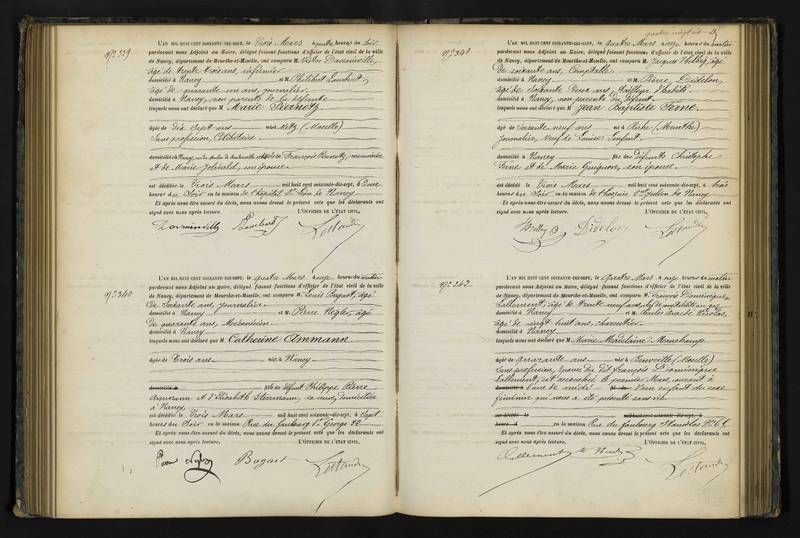 N° 339
L'AN MIL HUIT CENT SOIXANTE-DIX-SEPT, le Trois Mars à quatre heures du soir
pardevant nous Adjoint au Maire, délégué faisant fonctions d'officier de l'état civil de la ville
de Nancy, département de Meurthe-et-Moselle, ont comparu M. Victor
âgé de trente trois ans, infirmier
domicilié à Nancy et M. Philibert Lombert,
âgé de quarante un ans, journalier,
domicilié à Nancy, non parents de la défunte
lesquels nous ont déclaré que Marie
âgée de Dix Sept ans née à Metz (Moselle)
Sans profession, Célibataire
domiciliée à Nancy, fille de François, menuisier
et de Marie, son épouse
est décédée le Trois Mars mil huit cent soixante-dix-sept, à Deux
heures du Soir en la maison de l'hôpital St Léon de Nancy
Et après nous être assuré du décès, nous avons dressé le présent acte que les déclarants ont
signé avec nous après lecture. L'OFFICIER DE L'ÉTAT CIVIL,
N° 340
L'AN MIL HUIT CENT SOIXANTE-DIX-SEPT, le quatre Mars à onze heures du matin
pardevant nous Adjoint au maire, délégué faisant fonctions d'officier de l'état civil de la ville
de Nancy, département de Meurthe-et-Moselle, ont comparu M. Louis Bugnot, âgé
de Soixante ans, journalier
domicilié à Nancy et M. Pierre Negler, âgé
de quarante ans, Mécanicien
domicilié à Nancy
lesquels nous ont déclaré que Catherine Ammann
âgée de Trois ans née à Nancy
domiciliée à fille de défunt Philippe Pierre
Ammann et d'Elisabeth, sa veuve, domiciliée
à Nancy
est décédée le Trois Mars mil huit cent soixante-dix-sept, à Sept
heures du Soir en la maison Rue du faubourg St George 52
Et après nous être assuré du décès, nous avons dressé le présent acte que les déclarants ont
signé avec nous après lecture. L'OFFICIER DE L'ÉTAT CIVIL,
Bugnot
N° 341
L'AN MIL HUIT CENT SOIXANTE-DIX-SEPT, le quatre Mars à onze heures du matin
pardevant nous Adjoint au Maire, délégué faisant fonctions d'officier de l'état civil de la ville
de Nancy, département de Meurthe-et-Moselle, ont comparu M. Jacques, âgé
de soixante ans, Comptable
domicilié à Nancy et M. Pierre Didelon,
âgé de Soixante Deux ans, Tailleur d'habits
domicilié à Nancy, non parents du défunt
lesquels nous ont déclaré que Jean Baptiste Ferne
âgé de Soixante neuf ans né à Riche (Meurthe)
Journalier, Veuf de Louise
domicilié à Nancy fils des défunts Christophe
Ferne et de Marie Guignon, son épouse
est décédé le Trois Mars mil huit cent soixante-dix-sept, à trois
heures du Soir en la maison de l'hospice St Julien de Nancy
Et après nous être assuré du décès, nous avons dressé le présent acte que les déclarants ont
signé avec nous après lecture. L'OFFICIER DE L'ÉTAT CIVIL,
Didelon
N° 342
L'AN MIL HUIT CENT SOIXANTE-DIX-SEPT, le quatre Mars à onze heures du matin
pardevant nous Adjoint au Maire, délégué faisant fonctions d'officier de l'état civil de la ville
de Nancy, département de Meurthe-et-Moselle, ont comparu M. François Dominique
Lallement, âgé de trente neuf ans,
domicilié à Nancy et M. Charles Nicolas,
âgé de vingt huit ans, charretier
domicilié à Nancy
lesquels nous ont déclaré que Marie Madelaine
âgée de quarante ans née à (Moselle)
Sans profession, épouse du dit François Dominique
Lallement, est accouchée le premier Mars, courant à
l'une de midi d'un enfant du sexe
féminin qui nous a été présenté sans vie
est décédé le mil huit cent soixante-dix-sept, à
heures d en la maison Rue du faubourg Stanislas N° 65
Et après nous être assuré du décès, nous avons dressé le présent acte que les déclarants ont
signé avec nous après lecture. L'OFFICIER DE L'ÉTAT CIVIL,
Lallement